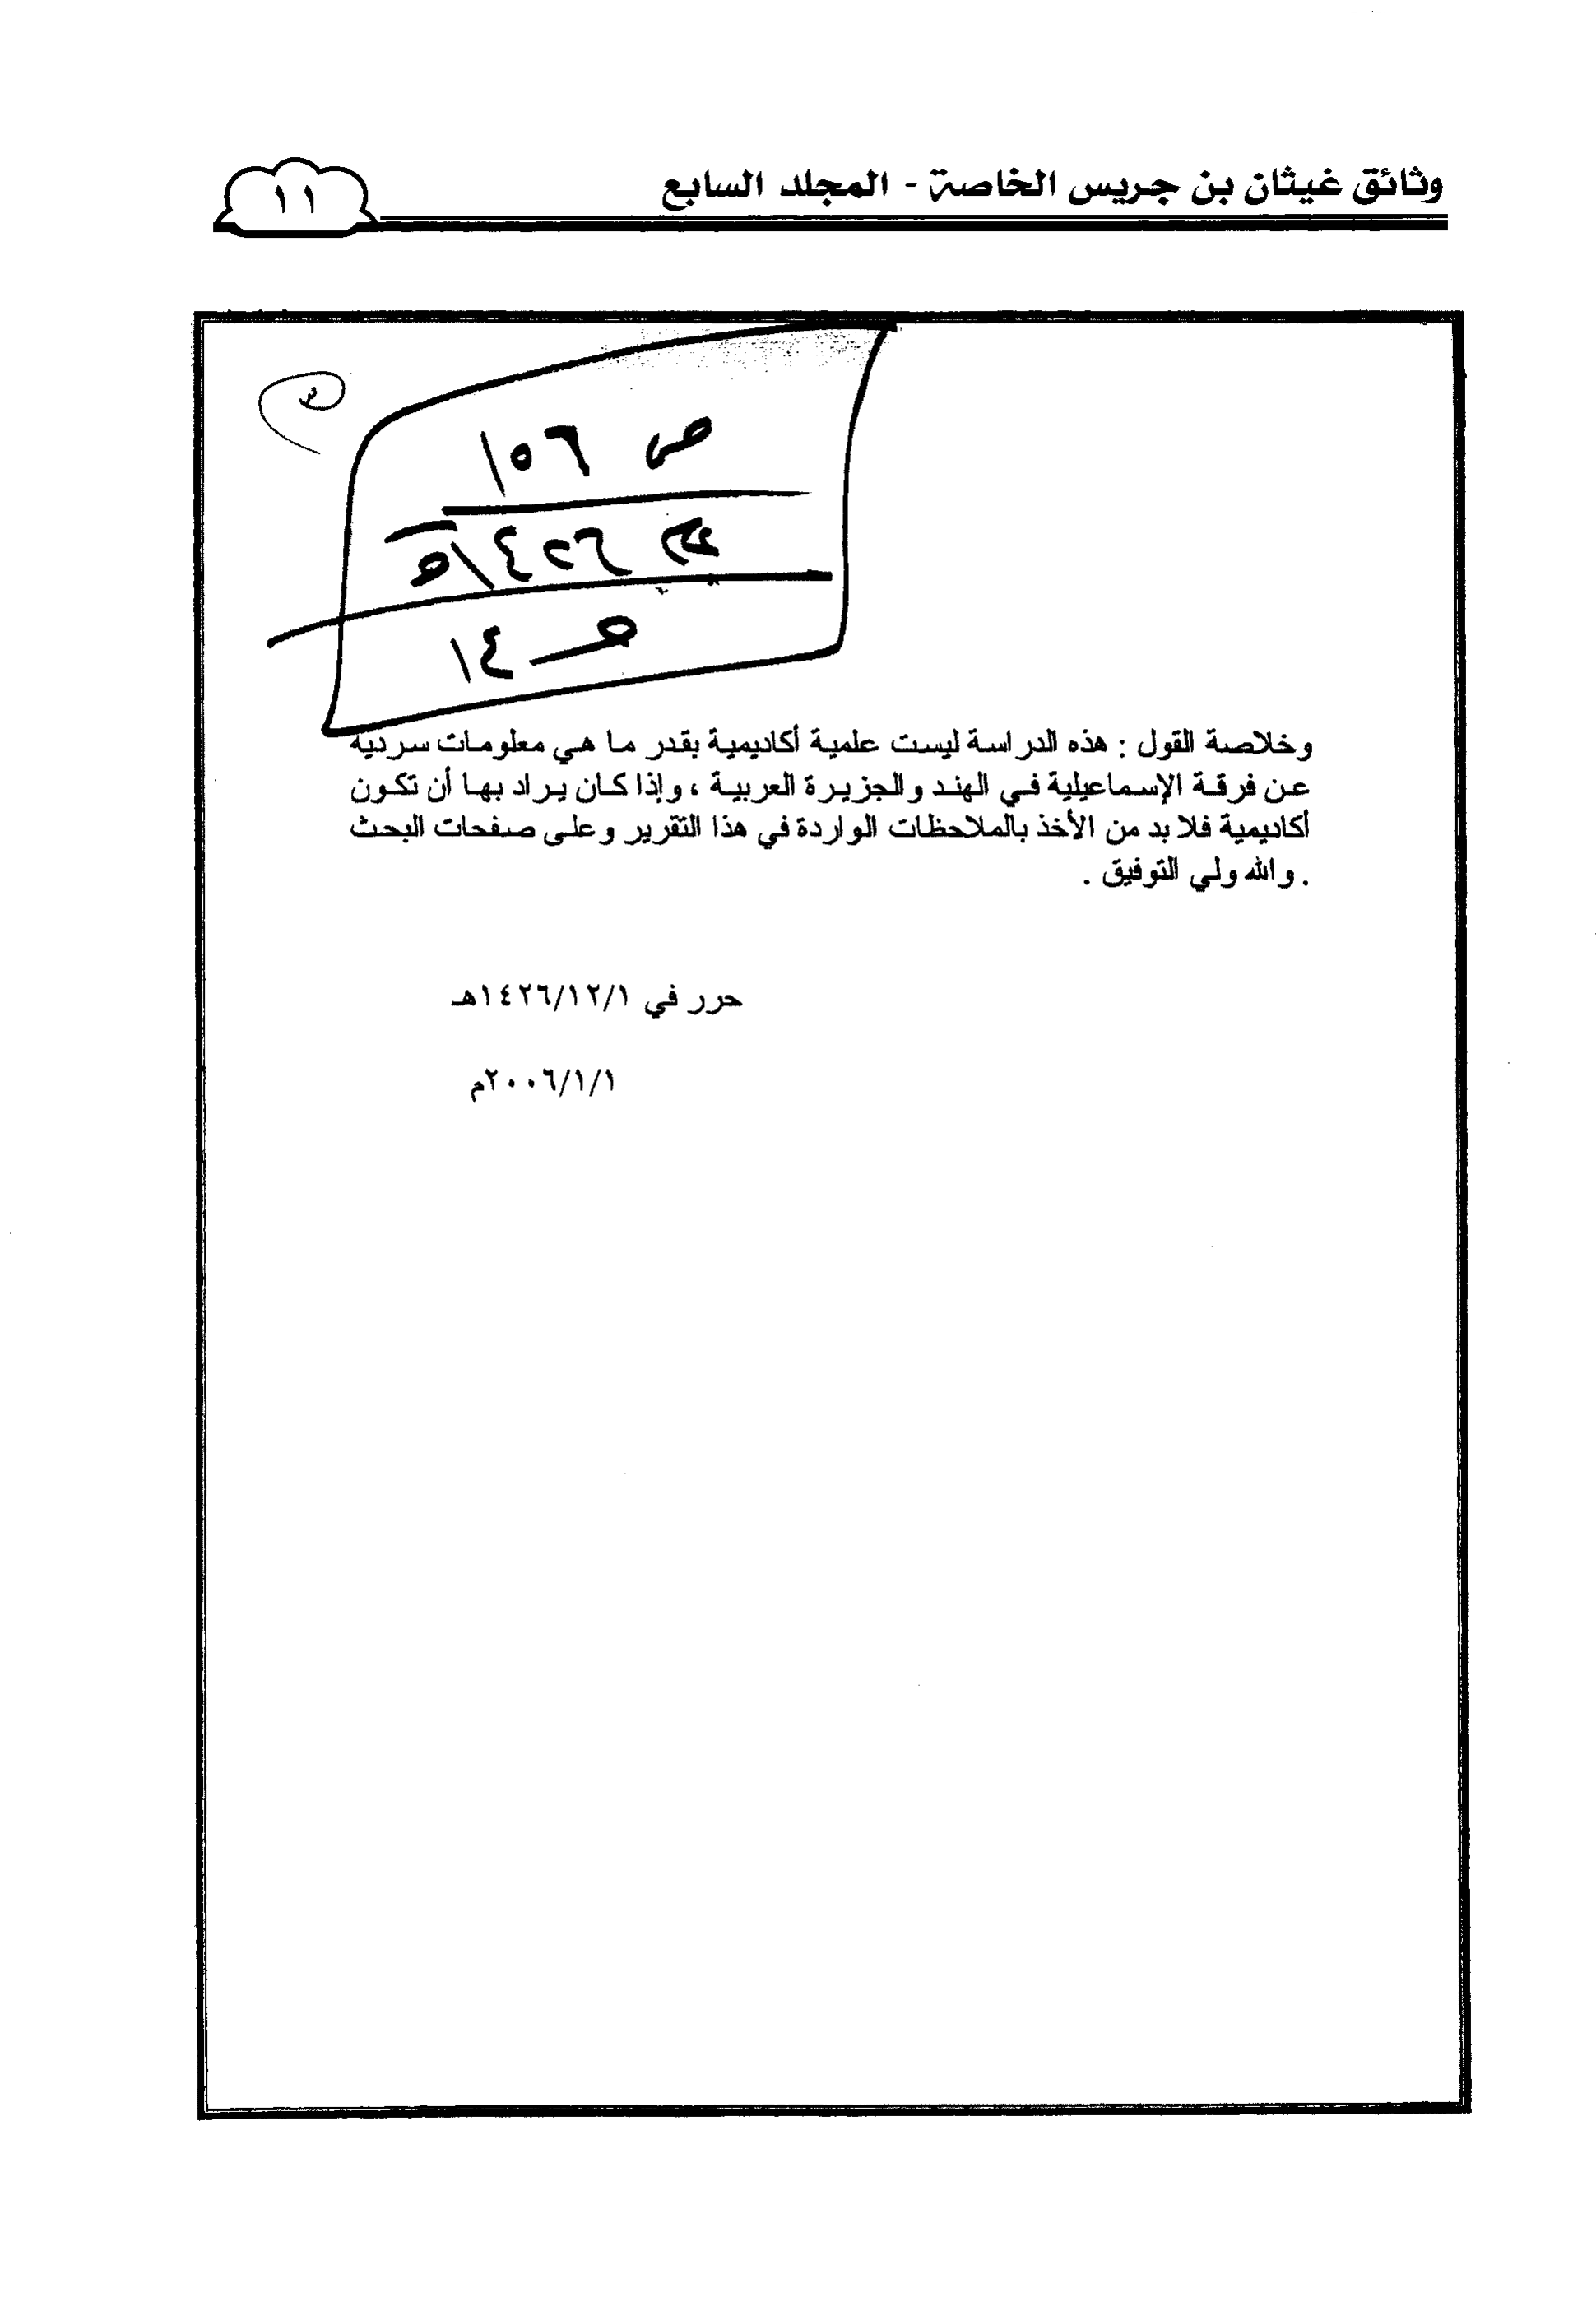 وثائق غيثان بن جريس الخاصة - المجلد السابع
١١
ص ١٥٦
١٤٢٦هـ
١٤
وخلاصة القول : هذه الدراسة ليست علمية أكاديمية بقدر ما هي معلومات سردية
عن فرقة الإسماعيلية في الهند والجزيرة العربية ، وإذا كان يراد بها أن تكون
أكاديمية فلا بد من الأخذ بالملاحظات الواردة في هذا التقرير وعلى صفحات البحث
. والله ولي التوفيق .
حرر في ١٤٢٦/١٢/١هـ
٢٠٠٦/١/١م